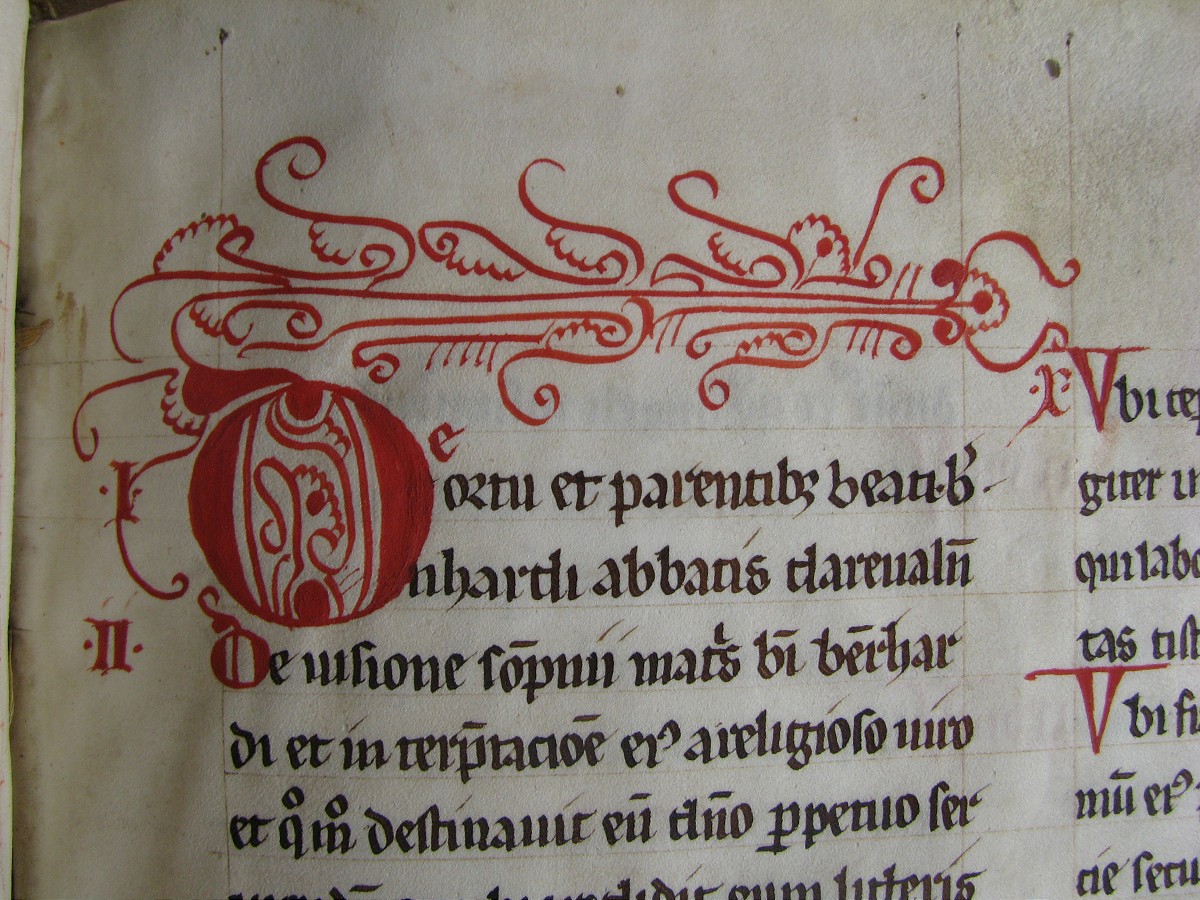 ·I· De ortu et parentibꝫ beati·b̅
nhardi abbatis clareualn̅
·II· De uisione so̅pnii mat͛s bi̅ be̅rhar
di et interp̅tacio̅e eiꝰ a religioso uiro
et qͦmͦ destinauit eu̅ dn̅o ꝑpetuo ser
eum litteris
·X· Vbi cep
giter
qui labo
tas
Vbi
mu̅ eiꝰ
cie secu